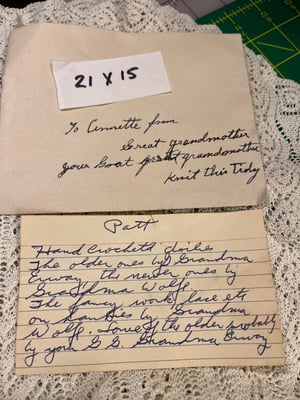 21 x 15
To Annette from
Great grandmother
your Great great grandmother
knit this Tidy
Patt
Hand Crochett doilies
The older ones by Grandma
the newer ones by
Grandma Wolfe
The fancy work, lace etc
on hankies by Grandma
Wolfe. Some of the older probably
by your G G Grandma